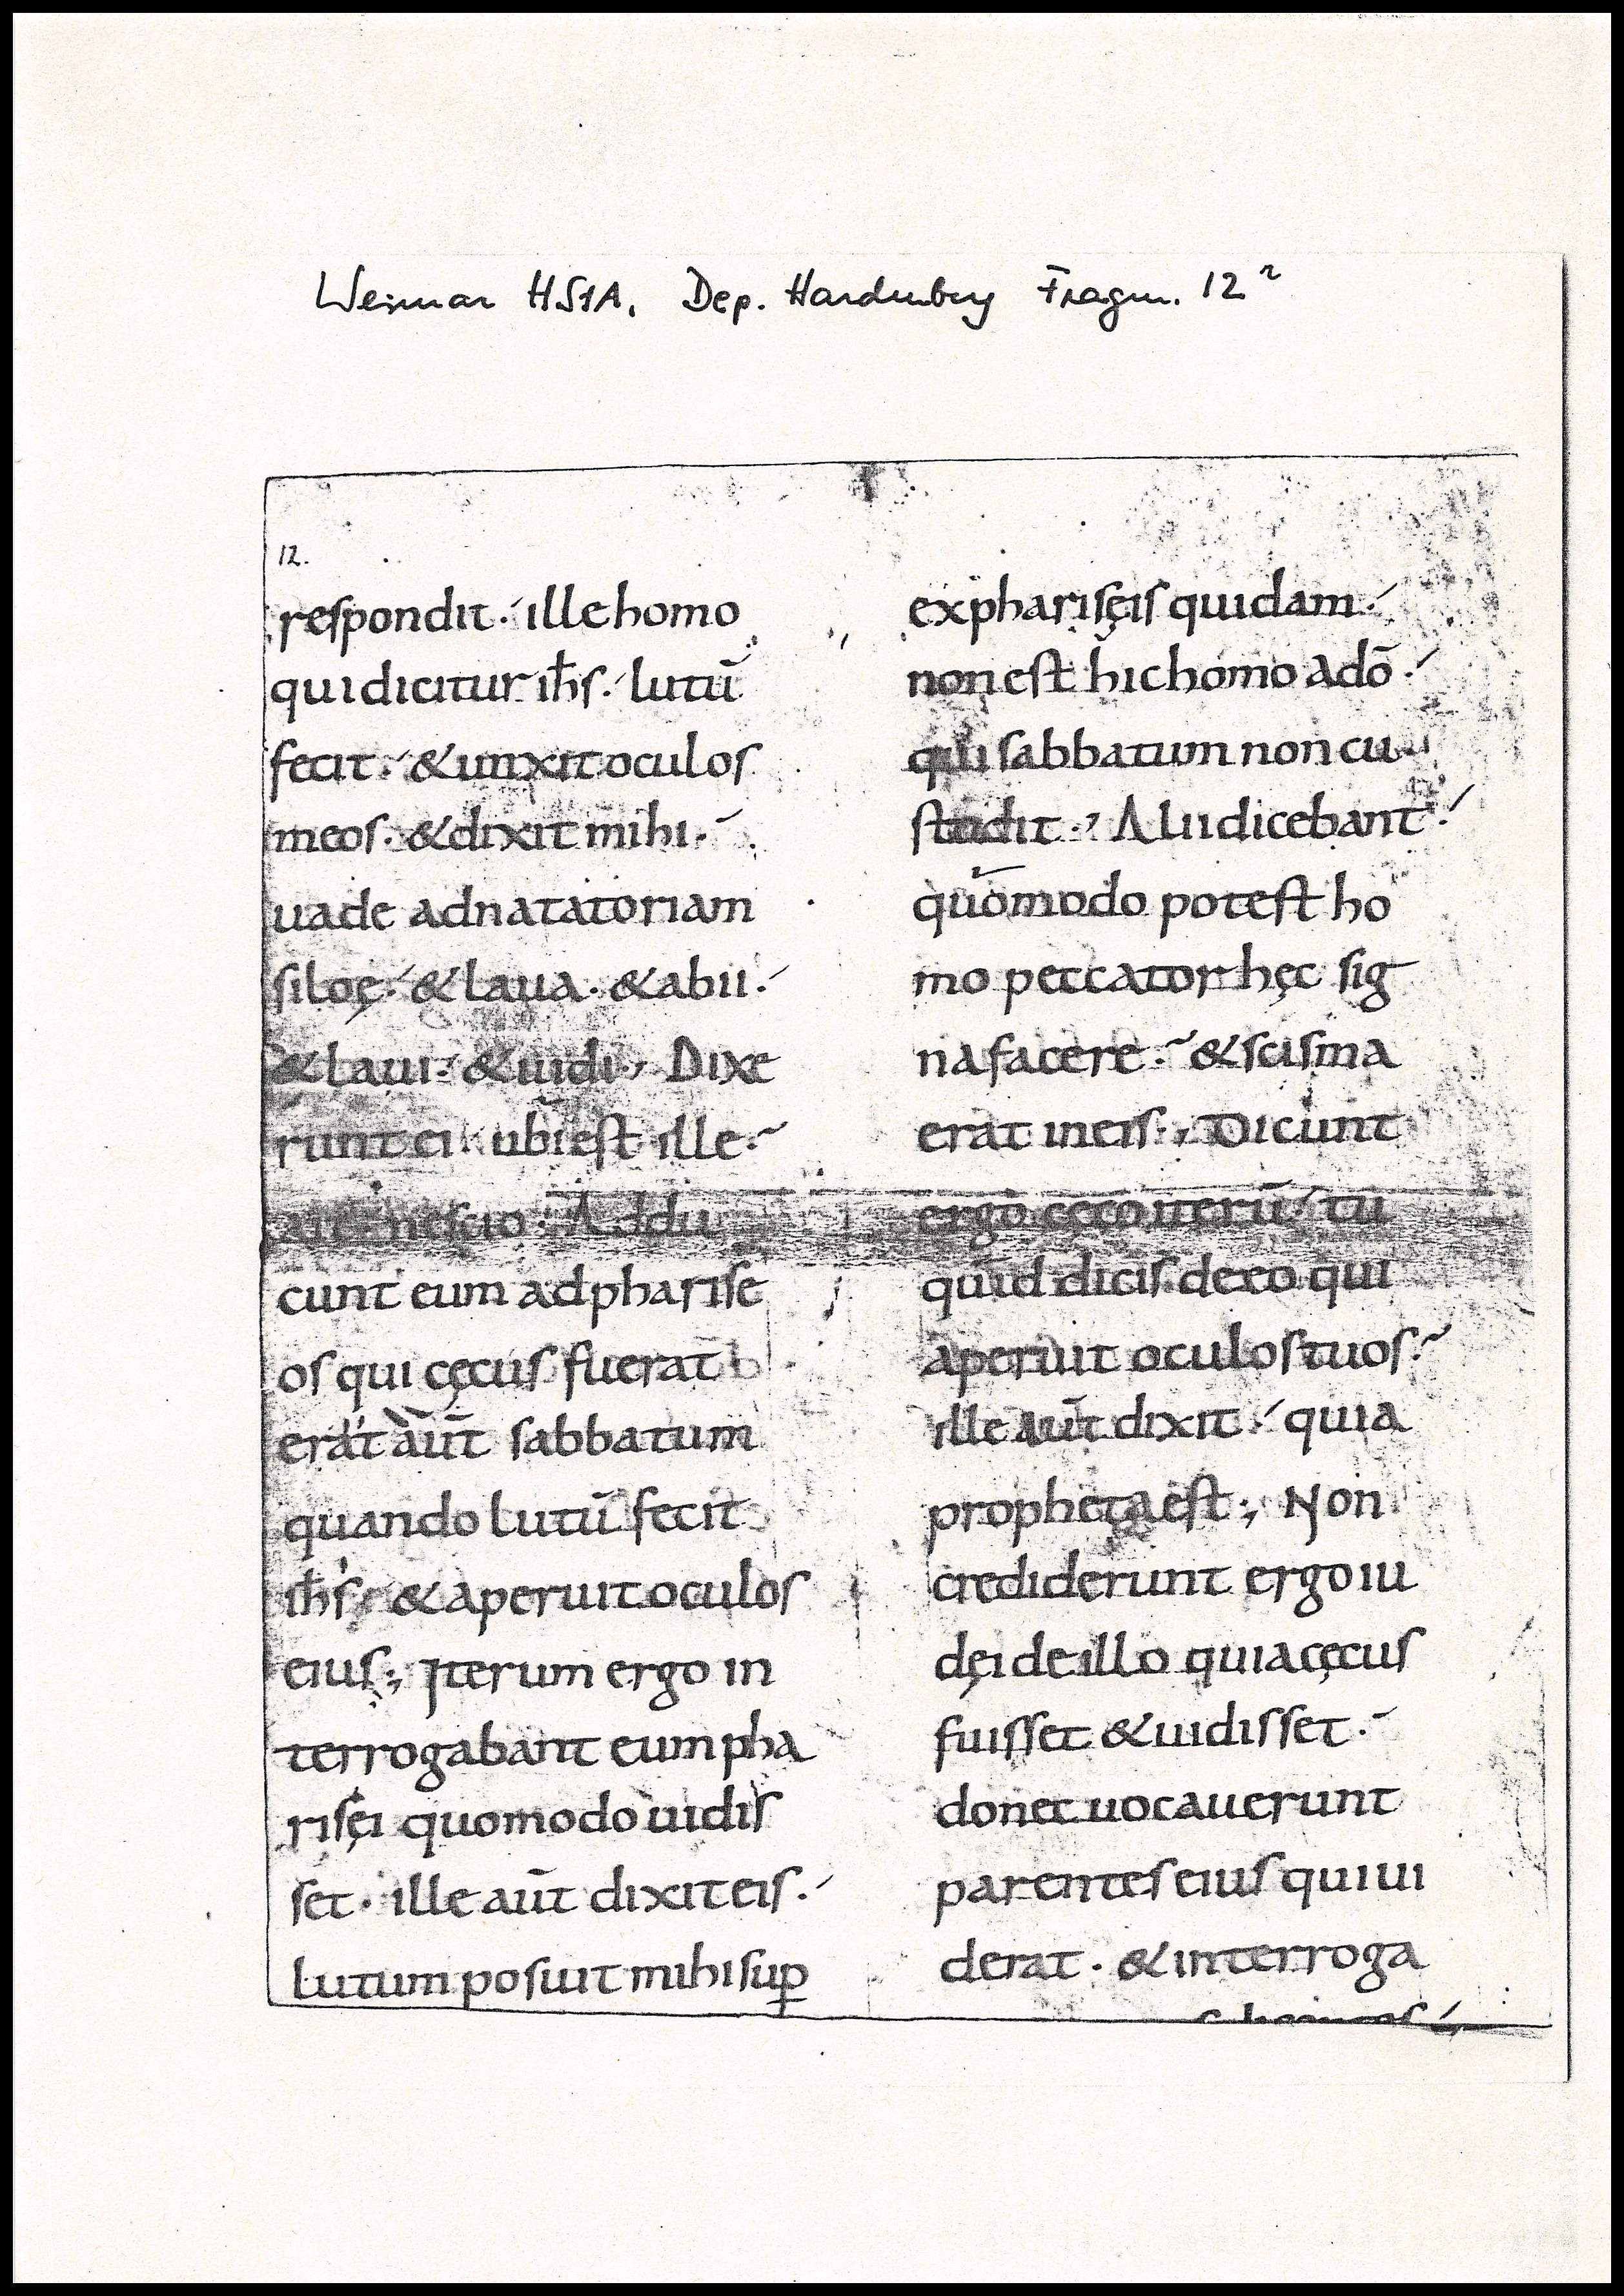 Weimar HStA, Dep. Hardenberg Fragm. 12ʳ
12.
respondit ·/ ille homo
qui dicitur ih̄s ·/ lutū
fecit ·/ & unxit oculos
meos · & dixit mihi ·/
uade ad natatoriam
siloę ·/ & laua · & abii ·/
& laui ·/ & uidi ·, Dixe
runt ei · ubi est ille ·~
ait nescio · Addu
cunt eum ad pharise
os qui cęcus fuerat
erat aūt sabbatum
quando lutū fecit
ih̄s ·/ & aperuit oculos
eius ·, Iterum ergo in
terrogabant eum pha
risęi quomodo uidis
set · ille aūt dixit eis ·/
lutum posuit mihi sup̱
ex pharisęis quidam ·/
non est hic homo a dō ·/
qui sabbatum non cu
stodit ·, Alii dicebant ·/
quōmodo potest ho
mo peccator hęc sig
na facere ·~ & scisma
erat in eis ·, Dicunt
ergo cęco iterū ·/ tu
quid dicis de eo qui
aperuit oculos tuos ·~
ille aūt dixit ·/ quia
propheta est ·, Non
crediderunt ergo iu
dęi de illo quia cęcus
fuisset & uidisset ·~
donec uocauerunt
parentes eius qui ui
derat · & interroga